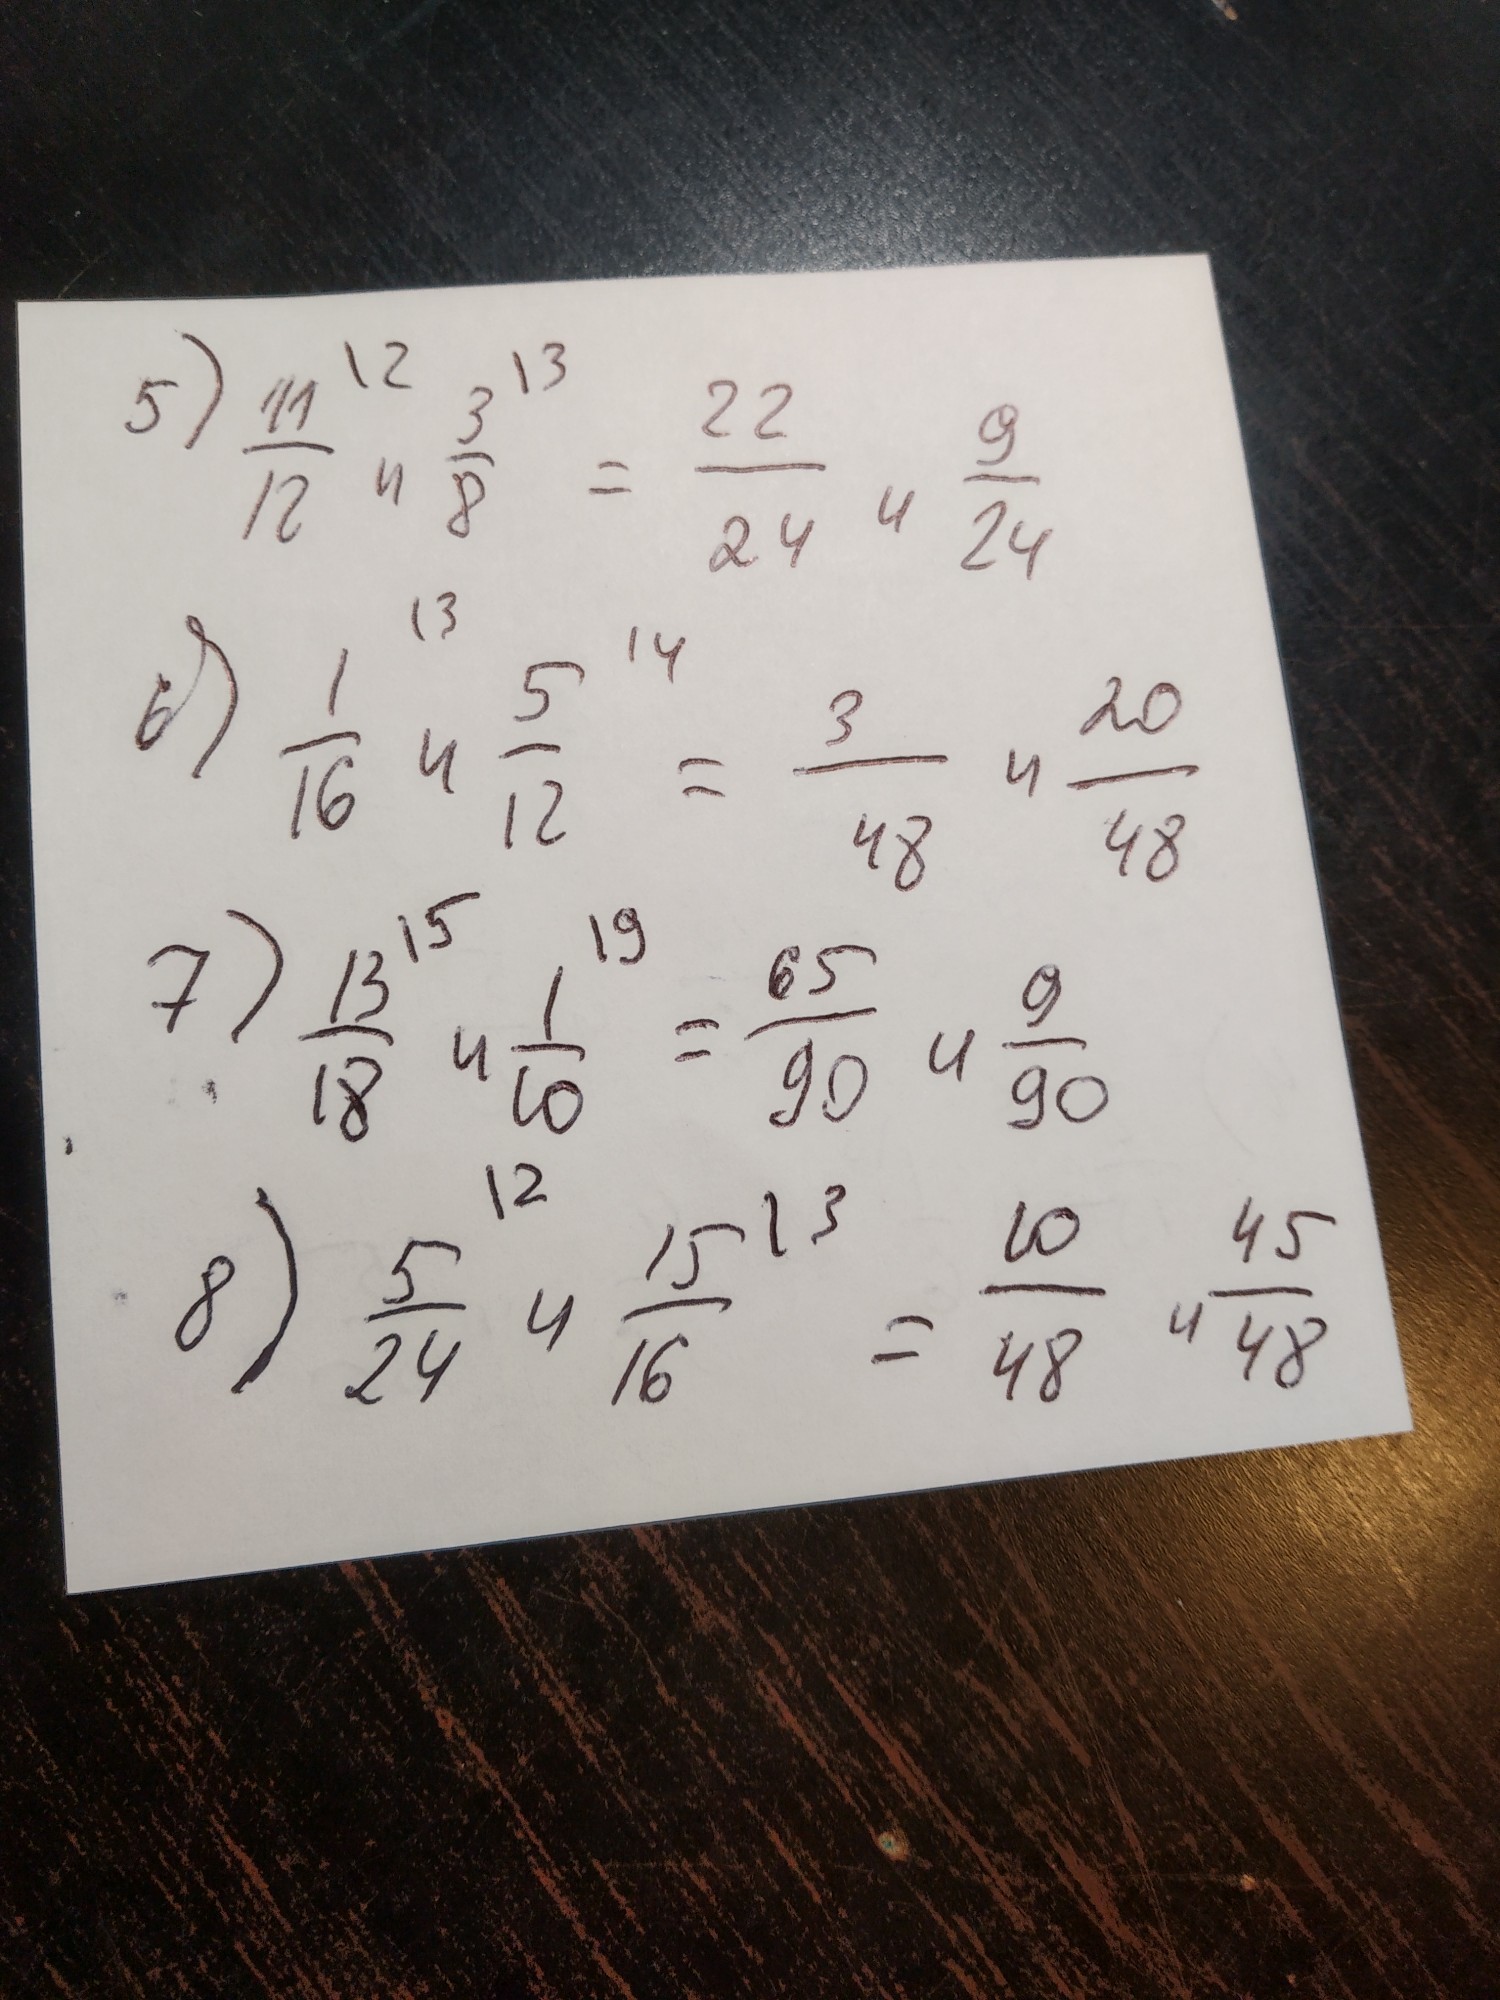 5) 11/12 |2 и 3/8 |3 = 22/24 и 9/24
6) 1/16 |3 и 5/12 |4 = 3/48 и 20/48
7) 13/18 |5 и 1/10 |9 = 65/90 и 9/90
8) 5/24 |2 и 15/16 |3 = 10/48 и 45/48